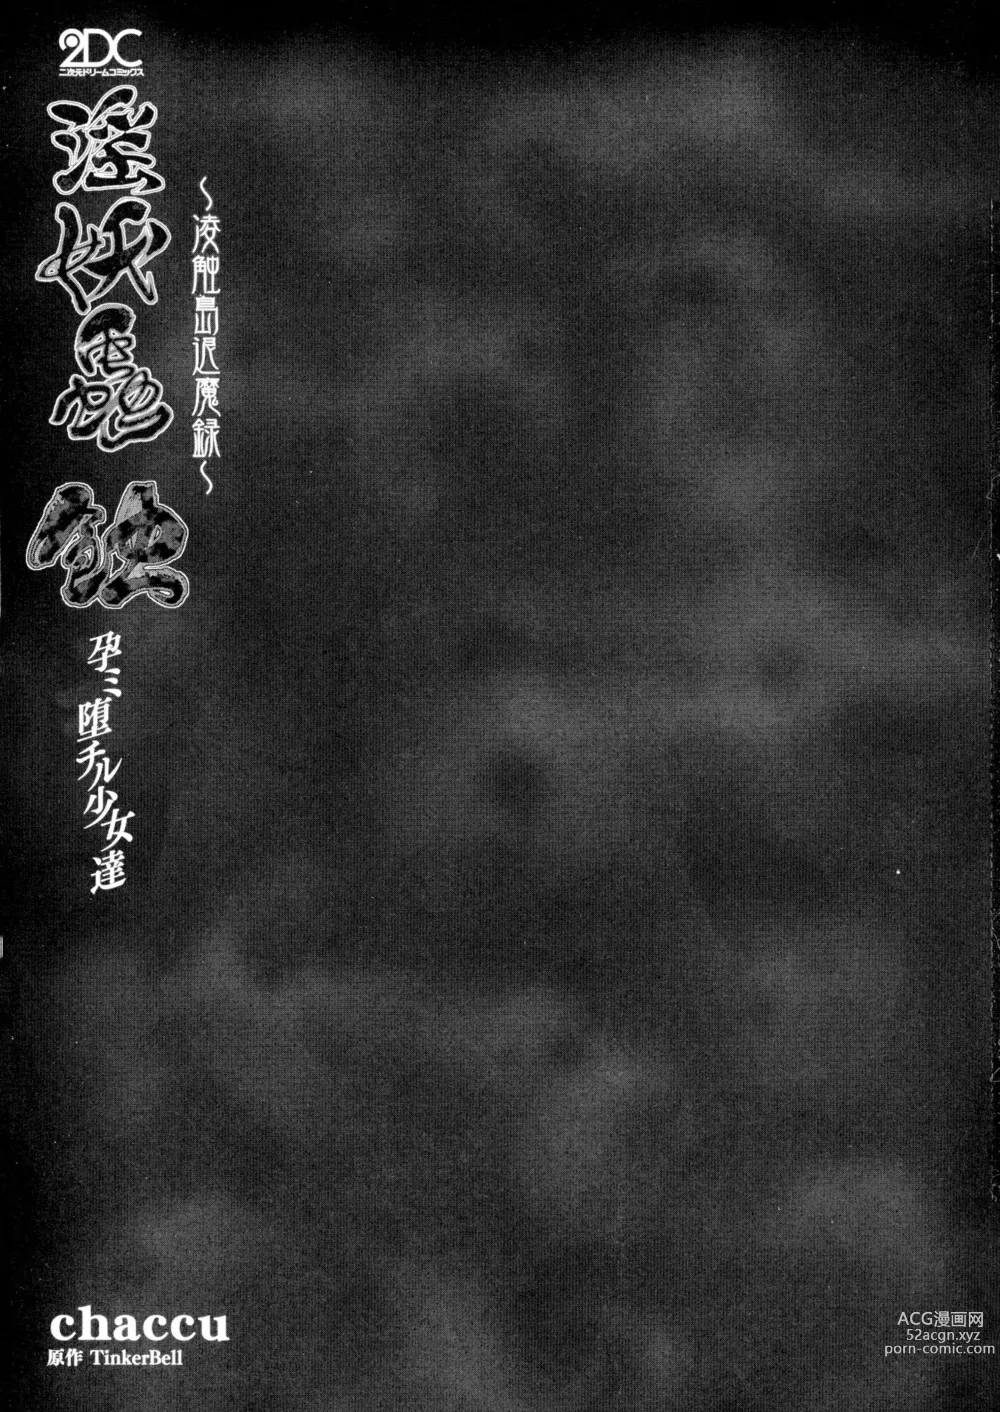 2DC
二次元ドリームコミックス
淫妖蟲 蝕
～凌触島退魔録～
孕ミ堕チル少女達
chaccu
原作 TinkerBell
ACG漫画网
52acgn.xyz
porn-comic.com